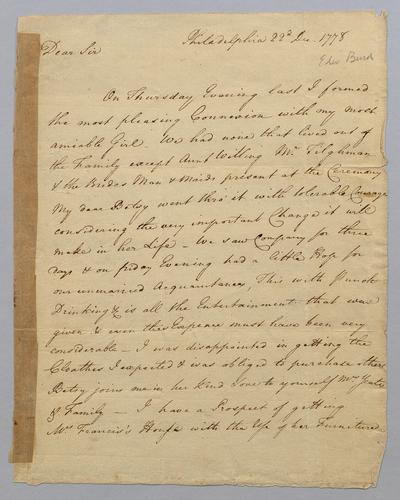 Philadelphia 22d Dec. 1778
Edw Burd
Dear Sir
On Thursday Evening last I formed
the most pleasing Connexion with my most
amiable Girl. We had none that lived out of
the Family except Aunt Willing Mr. Tilghman
& the Brides Man & Maids present at the Ceremony
My dear Betsy went thro' it with tolerable Courage
considering the very important Change it will
make in her Life – We saw Company for three
days & on friday Evening had a little Hop for
our unmarried Acquaintance, This with Punch
Drinking &c is all the Entertainment that was
given & even this Expence must have been very
considerable – I was disappointed in getting the
Cloathes I expected & was obliged to purchase others
Betsy joins me in her kind Love to yourself Mrs Yeates
& Family – I have a Prospect of getting
Mrs Francis's House with the Use of her Furniture